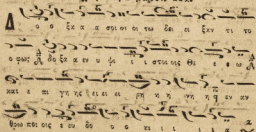 Δ ο ο ξα α σοι οι οι τω δει ει ξαν τι το
ο φως Δο ξα α εν υ ψι ι στοις Θε ε ε ω
και ε πι γης ει ει ρη η νη η εν αν
θρω ποις ευ δο ο κι ι α